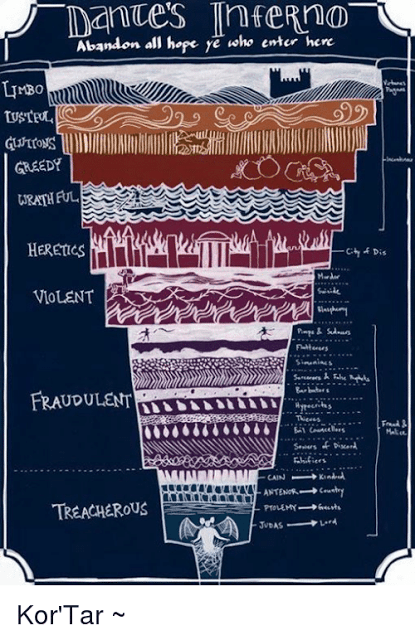 Dante's Inferno
Abandon all hope ye who enter here
LIMBO
Virtuous
Pagans
LUSTFUL
GLUTTONS
GREEDY
WRATHFUL
HERETICS
City of Dis
VIOLENT
Murder
Suicide
Blasphemy
FRAUDULENT
Pimps & Seducers
Flatterers
Simoniacs
Sorcerers & False Prophets
Barrators
Hypocrites
Thieves
Evil Councellors
Sowers of Discord
Falsifiers
Fraud &
Malice
TREACHEROUS
CAIN → Kindred
ANTENOR → Country
PTOLEMY → Guests
JUDAS → Lord
Kor'Tar ~